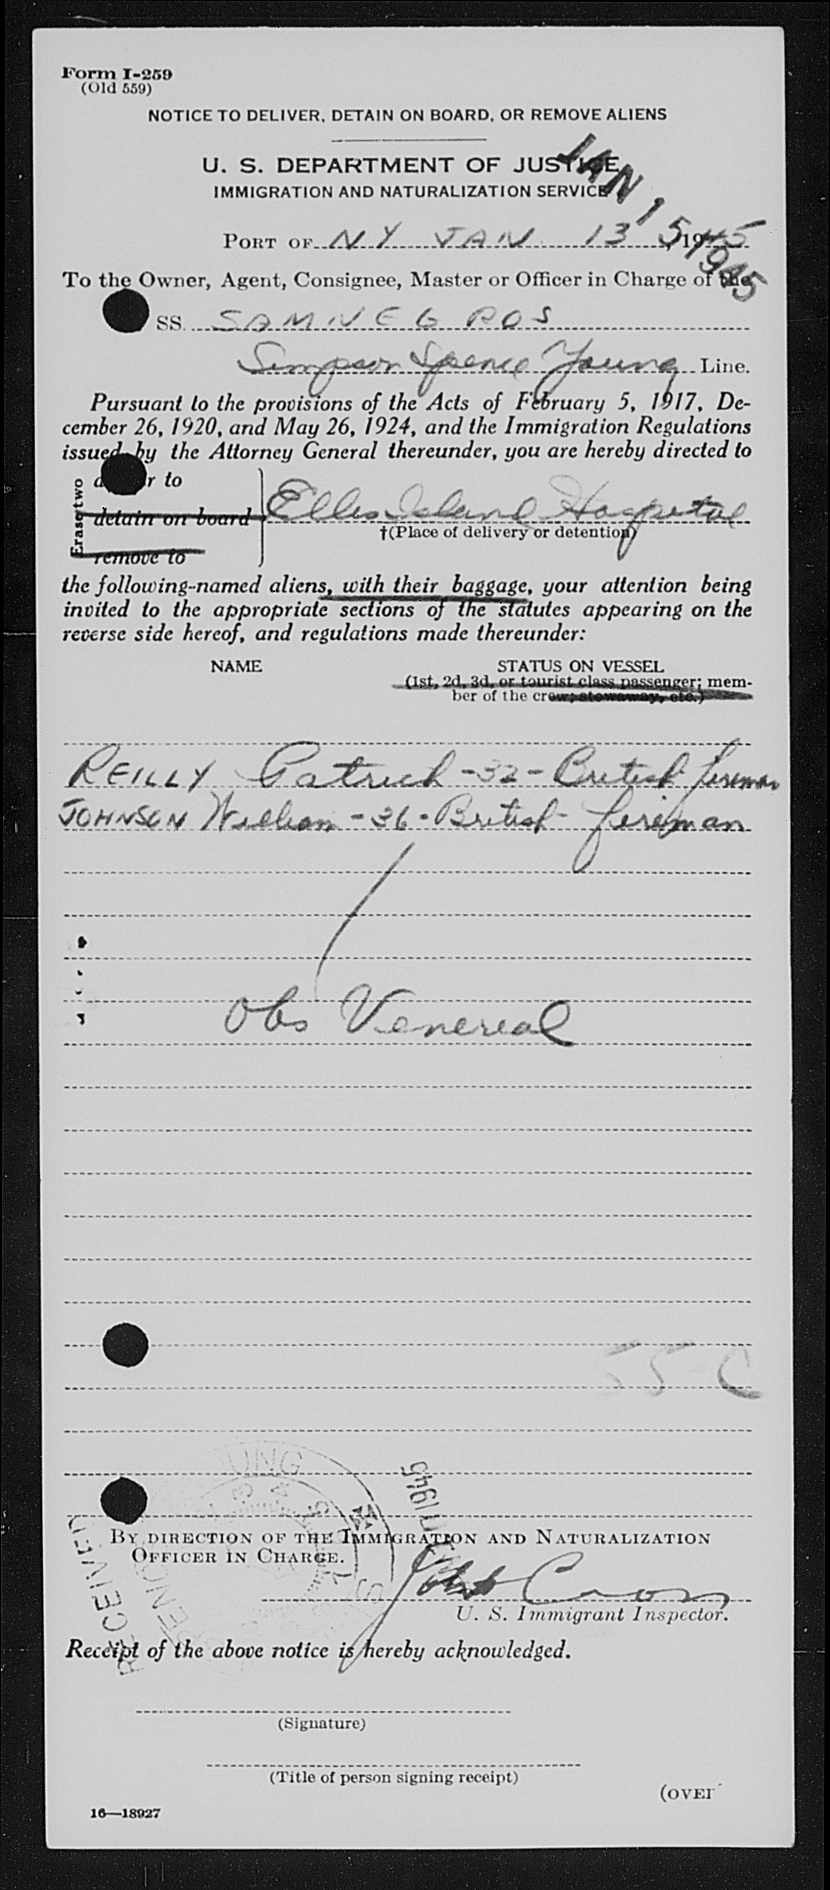 Form I-259
(Old 559)
NOTICE TO DELIVER, DETAIN ON BOARD, OR REMOVE ALIENS
U. S. DEPARTMENT OF JUSTICE
IMMIGRATION AND NATURALIZATION SERVICE
JAN 15 1945
PORT OF N Y JAN 13, 1945
To the Owner, Agent, Consignee, Master or Officer in Charge of the
SS. SAMNEGROS
Simpson Spence Young Line.
Pursuant to the provisions of the Acts of February 5, 1917, De-
cember 26, 1920, and May 26, 1924, and the Immigration Regulations
issued by the Attorney General thereunder, you are hereby directed to
r to
Erase two
detain on board
Ellis Island Hospital
†(Place of delivery or detention)
remove to
the following-named aliens, with their baggage, your attention being
invited to the appropriate sections of the statutes appearing on the
reverse side hereof, and regulations made thereunder:
NAME STATUS ON VESSEL
(1st, 2d, 3d, or tourist class passenger; mem-
ber of the crew; stowaway, etc.)
REILLY Patrick - 32 - British fireman
JOHNSON William - 36 - British - fireman
Obs Venereal
55-C
RECEIVED
BY DIRECTION OF THE IMMIGRATION AND NATURALIZATION
OFFICER IN CHARGE.
U. S. Immigrant Inspector.
Receipt of the above notice is hereby acknowledged.
(Signature)
(Title of person signing receipt)
(OVER
16—18927